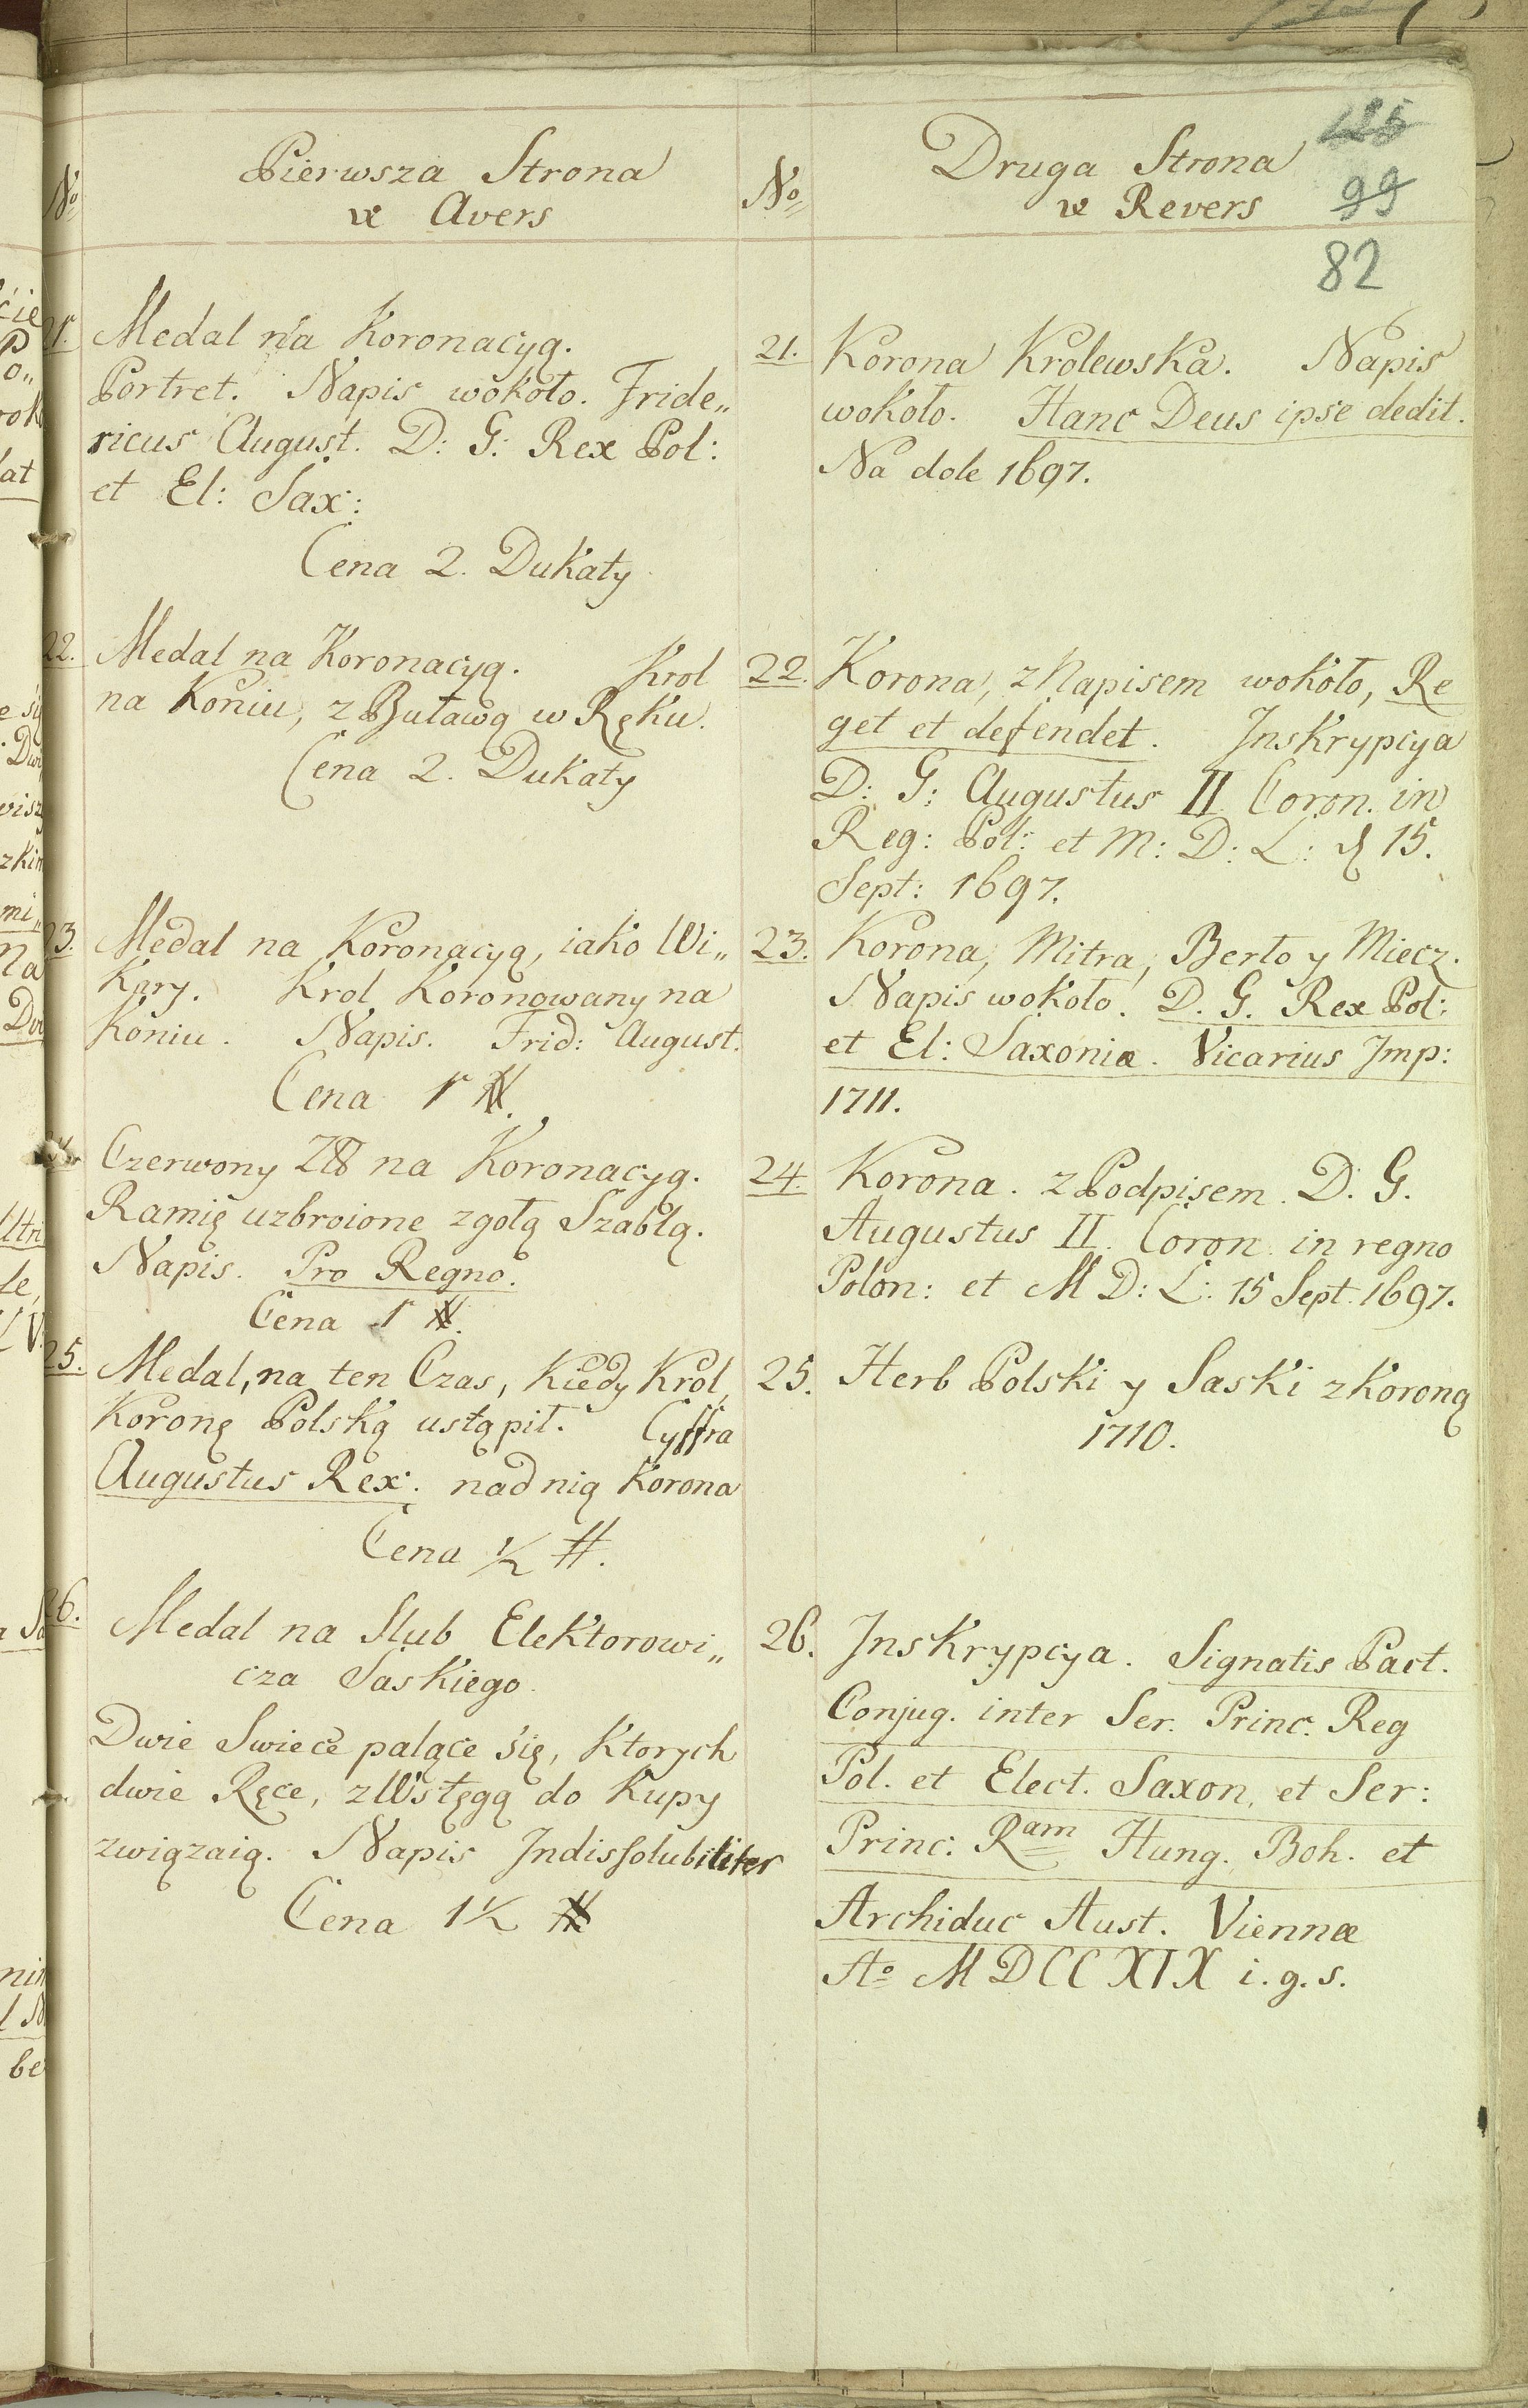 125
99
82
No
Pierwsza Strona
v Avers
No
Druga Strona
v Revers
21.
Medal na Koronacyą.
Portret. Napis wokoło. Fride„
ricus August. D: G: Rex Pol:
et El: Sax:
Cena 2. Dukaty
21.
Korona Krolewska. Napis
wokoło. Hanc Deus ipse dedit.
Na dole 1697.
22.
Medal na Koronacyą. Krol
na Koniu, z Buławą w Ręku.
Cena 2. Dukaty
22.
Korona, z Napisem wokoło, Re
get et defendet. Inskrypcya
D: G: Augustus II Coron. in
Reg: Pol: et M: D: L: d 15.
Sept: 1697.
23.
Medal na Koronacyą, iako Wi„
kary. Krol Koronowany na
Koniu. Napis. Frid: August.
Cena 1 #.
23.
Korona, Mitra, Berło y Miecz.
Napis wokoło. D. G. Rex Pol:
et El: Saxoniæ. Vicarius Imp:
1711.
Czerwony Zł na Koronacyą.
Ramię uzbroione z gołą Szablą.
Napis. Pro Regno.
Cena 1 #.
24.
Korona. z Podpisem. D. G.
Augustus II. Coron. in regno
Polon: et M D: L: 15 Sept. 1697.
25.
Medal, na ten Czas, Kiedy Krol,
Koronę Polską ustąpił. Cyffra
Augustus Rex: nad nią Korona
Cena ½ #.
25.
Herb Polski y Saski z Koroną
1710.
26.
Medal na Slub Elektorowi„
cza Saskiego.
Dwie Swiece palące się, Ktorych
dwie Ręce, z Wstęgą do Kupy
związaią. Napis Indissolubiliter
Cena 1½ #
26.
Inskrypcya. Signatis Pact.
Conjug. inter Ser. Princ. Reg
Pol. et Elect. Saxon, et Ser:
Princ: Ram Hung. Boh. et
Archiduc Aust. Viennæ
Ao MDCCXIX i. g. s.